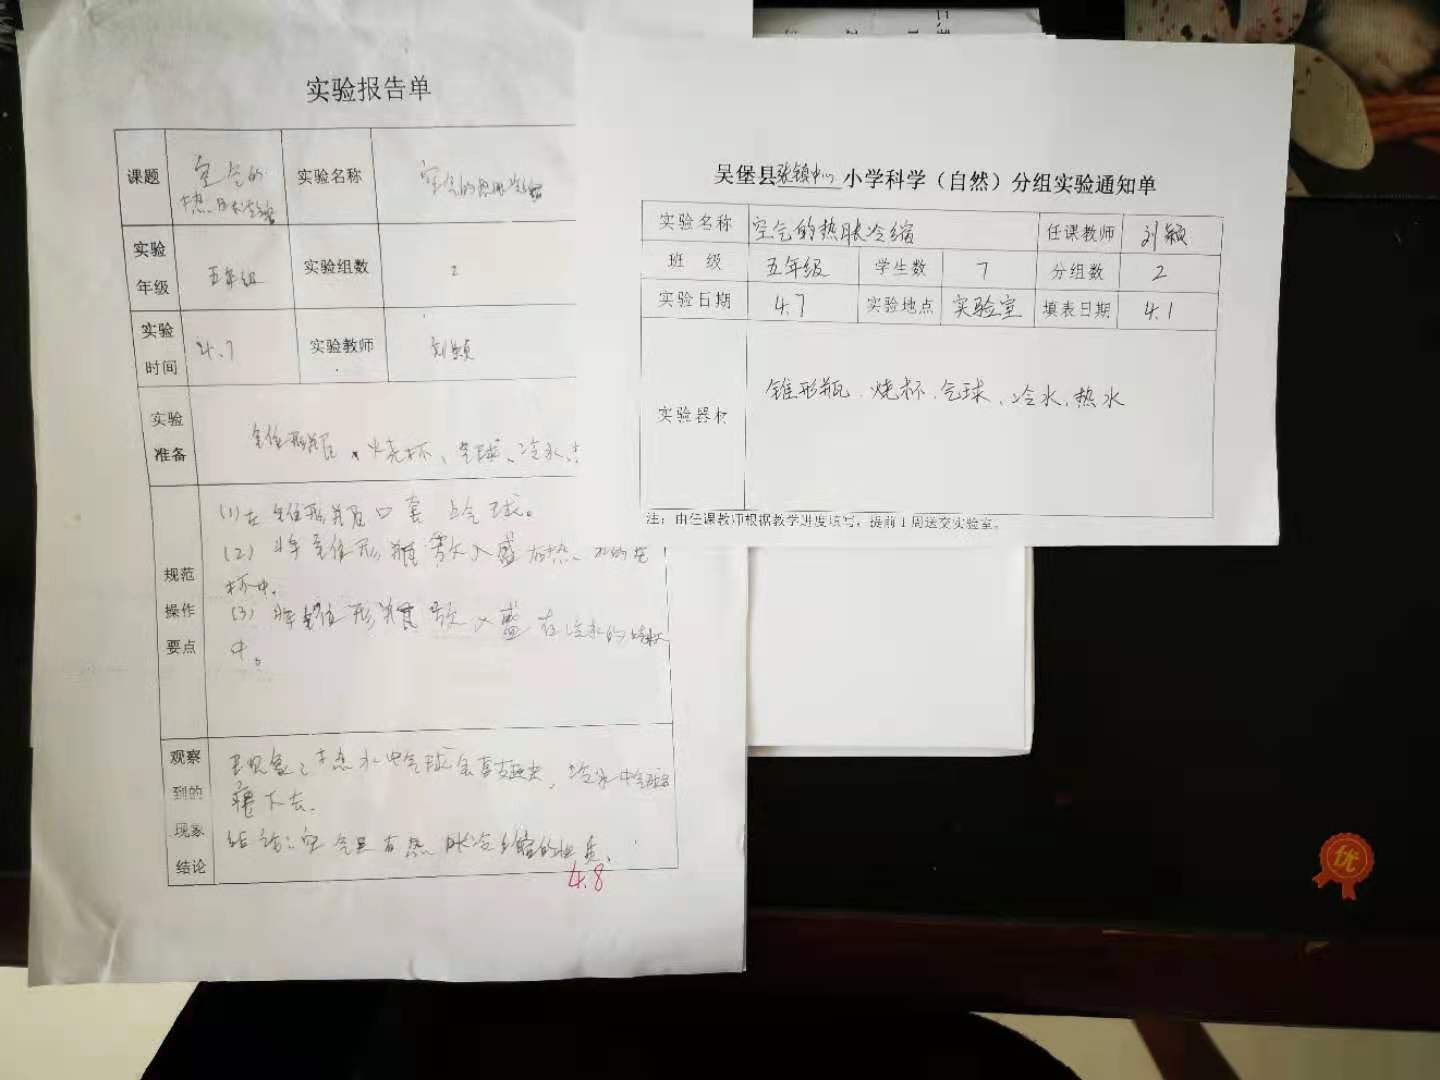 实验报告单
课题 空气的热胀冷缩 实验名称 空气的热胀冷缩
实验年级 五年级 实验组数 2
实验时间 4.7 实验教师 刘颖
实验准备 锥形瓶、烧杯、气球、冷水、
规范操作要点
(1)在锥形瓶口套上气球。
(2)将锥形瓶放入盛有热水的烧
杯中。
(3)将锥形瓶放入盛有冷水的烧杯
中。
观察到的现象结论
现象:热水中气球会鼓起来,冷水中气球
瘪下去。
结论:空气具有热胀冷缩的性质。
4.8
吴堡县张镇中心小学科学(自然)分组实验通知单
实验名称 空气的热胀冷缩 任课教师 刘颖
班 级 五年级 学生数 7 分组数 2
实验日期 4.7 实验地点 实验室 填表日期 4.1
实验器材 锥形瓶、烧杯、气球、冷水、热水
注:由任课教师根据教学进度填写,提前1周送交实验室。
优